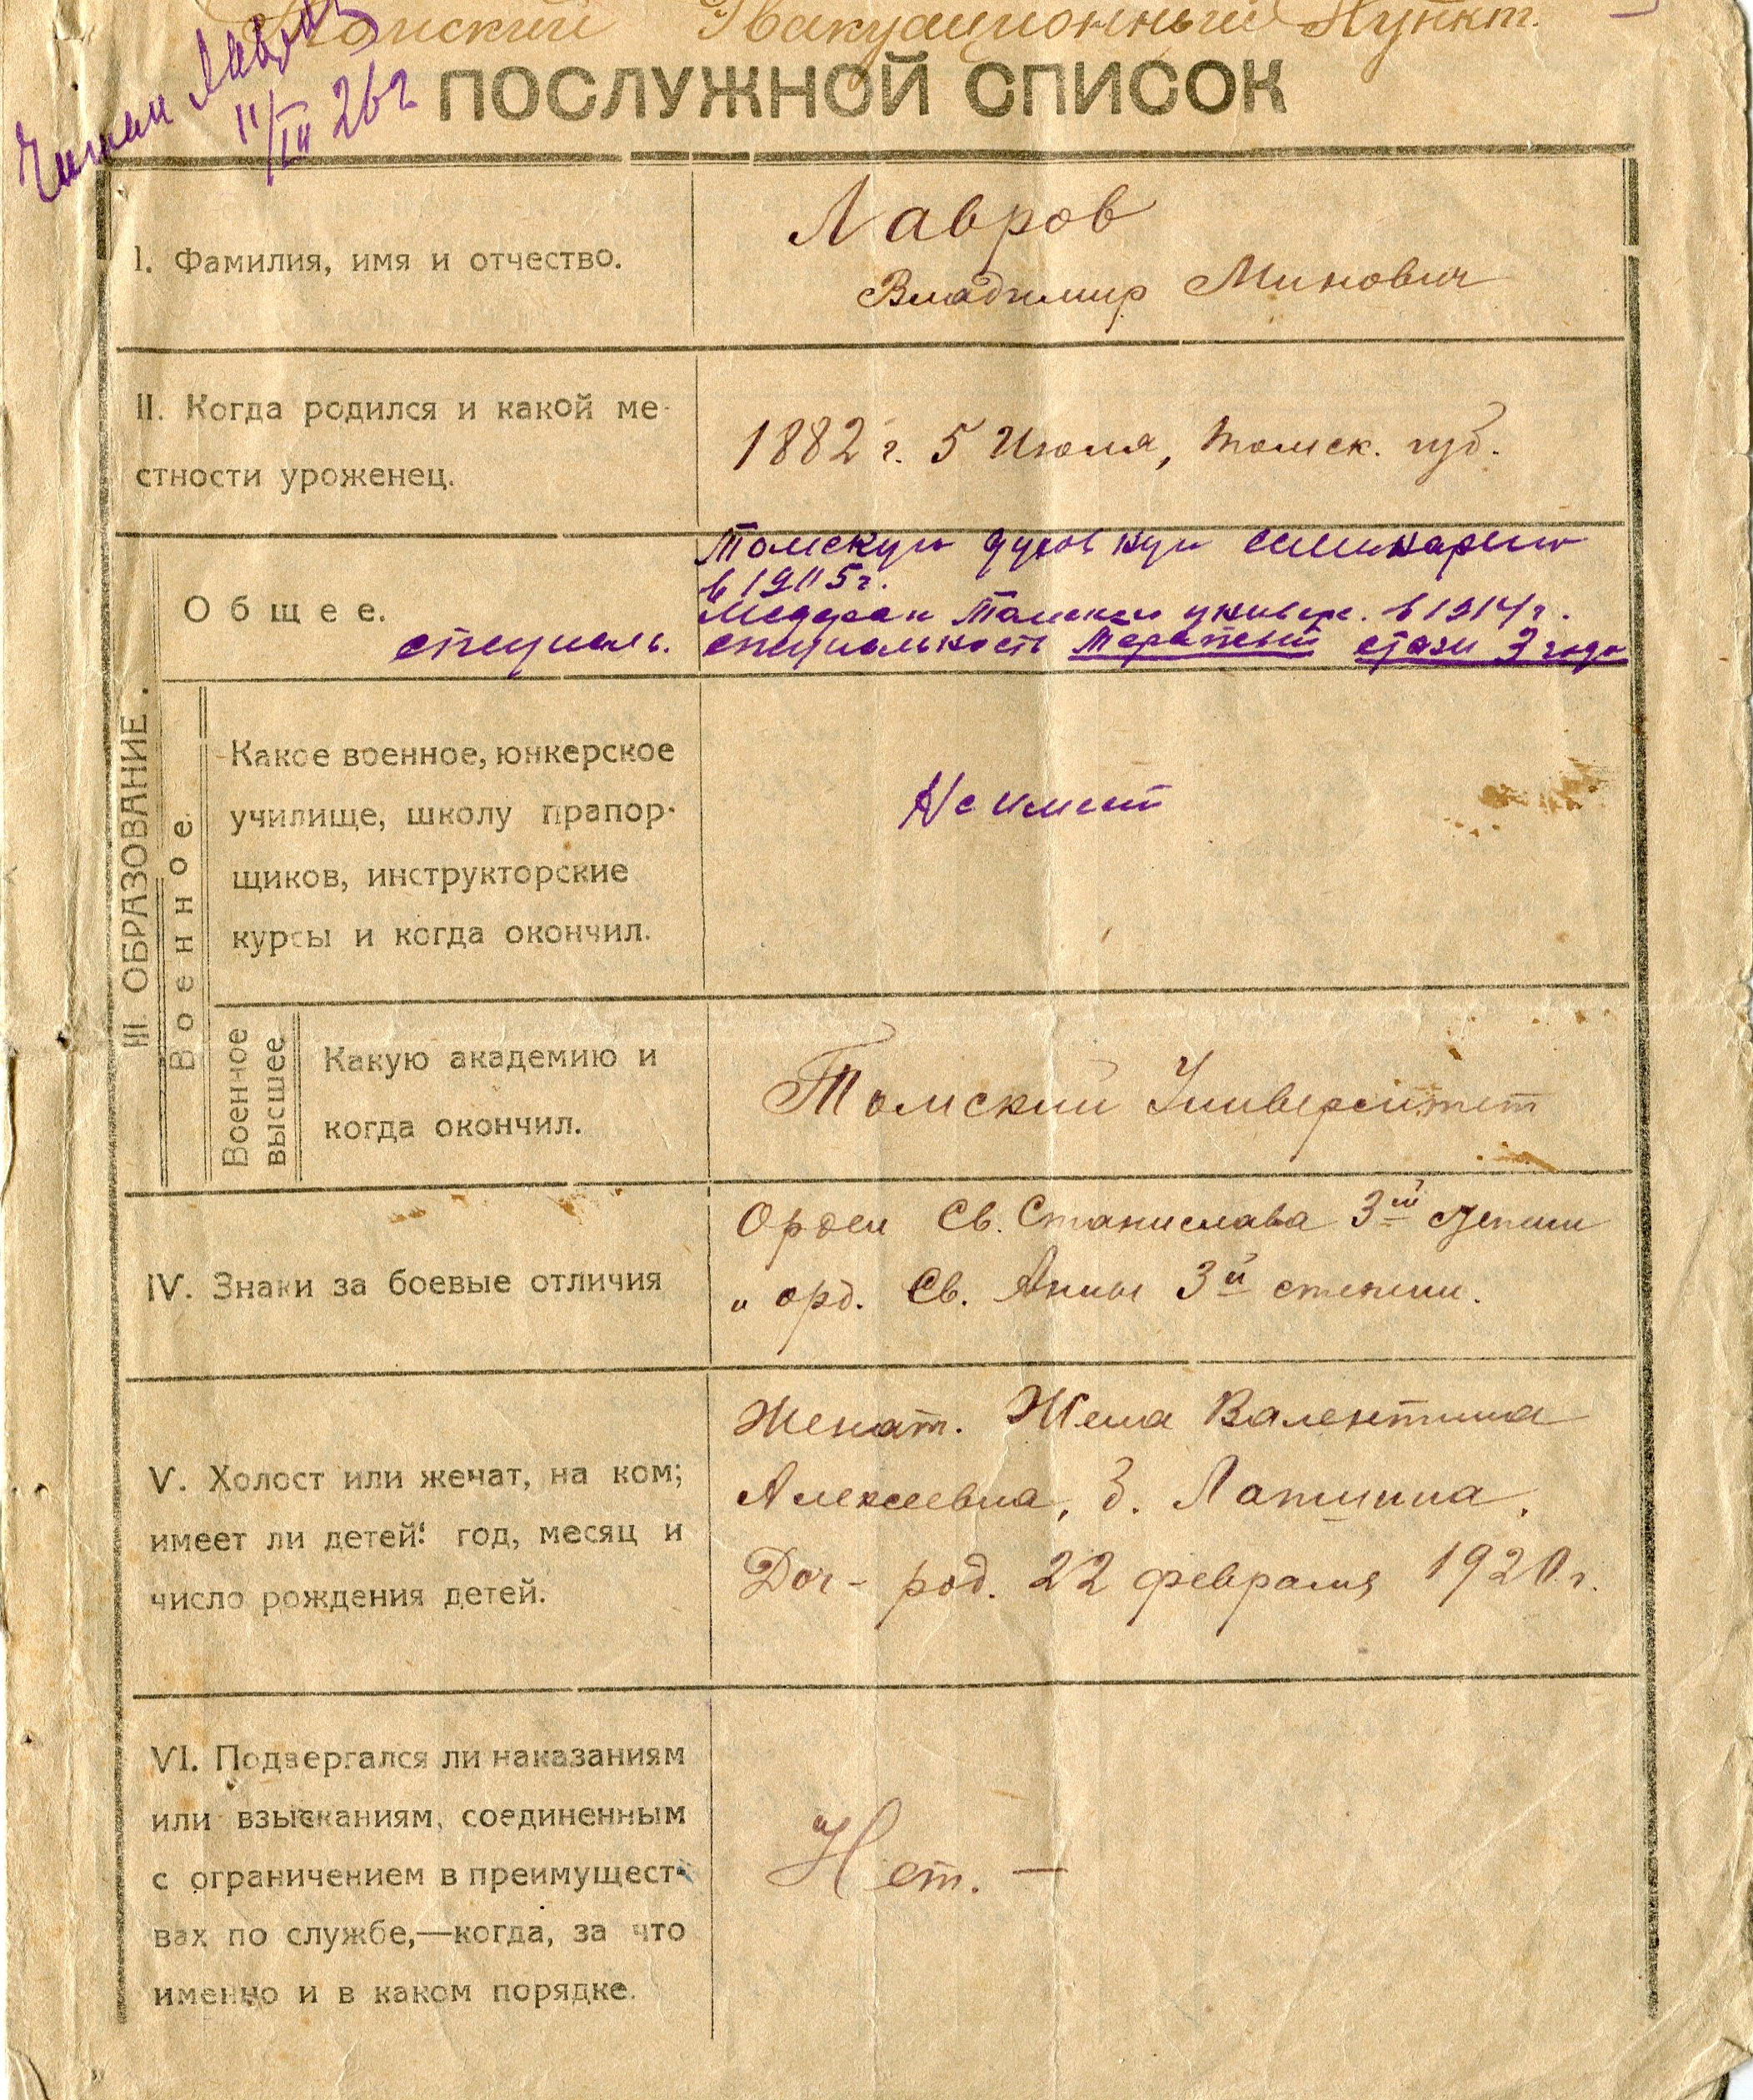 Томский Эвакуационный Пункт.
Читал Лавров
11/III 26 г
ПОСЛУЖНОЙ СПИСОК
I. Фамилия, имя и отчество.
Лавров
Владимир Минович
II. Когда родился и какой ме-
стности уроженец.
1882 г. 5 Июля, Томск. губ.
III. ОБРАЗОВАНИЕ.
Общее.
специаль.
Томскую духовную семинарию
в 1905 г.
Томском универс. в 1914 г.
специальность терапевт стаж 3 года
Военное
Какое военное, юнкерское
училище, школу прапор-
щиков, инструкторские
курсы и когда окончил.
Не имеет
Военное
высшее
Какую академию и
когда окончил.
Томский Университет
IV. Знаки за боевые отличия
Орден Св. Станислава 3ей степени
" орд. Св. Анны 3й степени.
V. Холост или жечат, на ком;
имеет ли детей: год, месяц и
число рождения детей.
Женат. Жена Валентина
Алексеевна, д. Лапшина.
Доч- род. 22 февраля 1920 г.
VI. Подвергался ли наказаниям
или взысканиям, соединенным
с ограничением в преимущест-
вах по службе,—когда, за что
именно и в каком порядке.
Нет. —